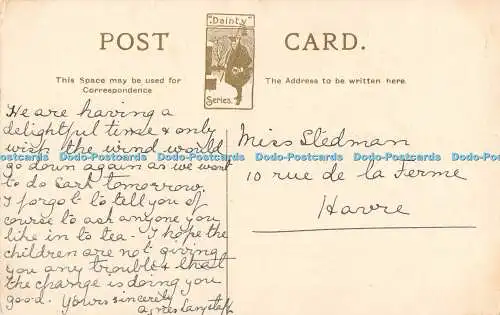 POST CARD.
"Dainty"
Series.
This Space may be used for
Correspondence
The Address to be written here.
We are having a
delightful time & only
wish the wind would
go down again as we want
to do Sark tomorrow.
I forgot to tell you of
course to ask anyone you
like in to tea. I hope the
children are not giving
you any trouble & that
the change is doing you
good. Yours sincerely
Agnes Langstaff
Miss Stedman
10 rue de la Ferme
Havre
Dodo-Postcards Dodo-Postcards Dodo-Postcards Dodo-Postcards Dodo-Postcards